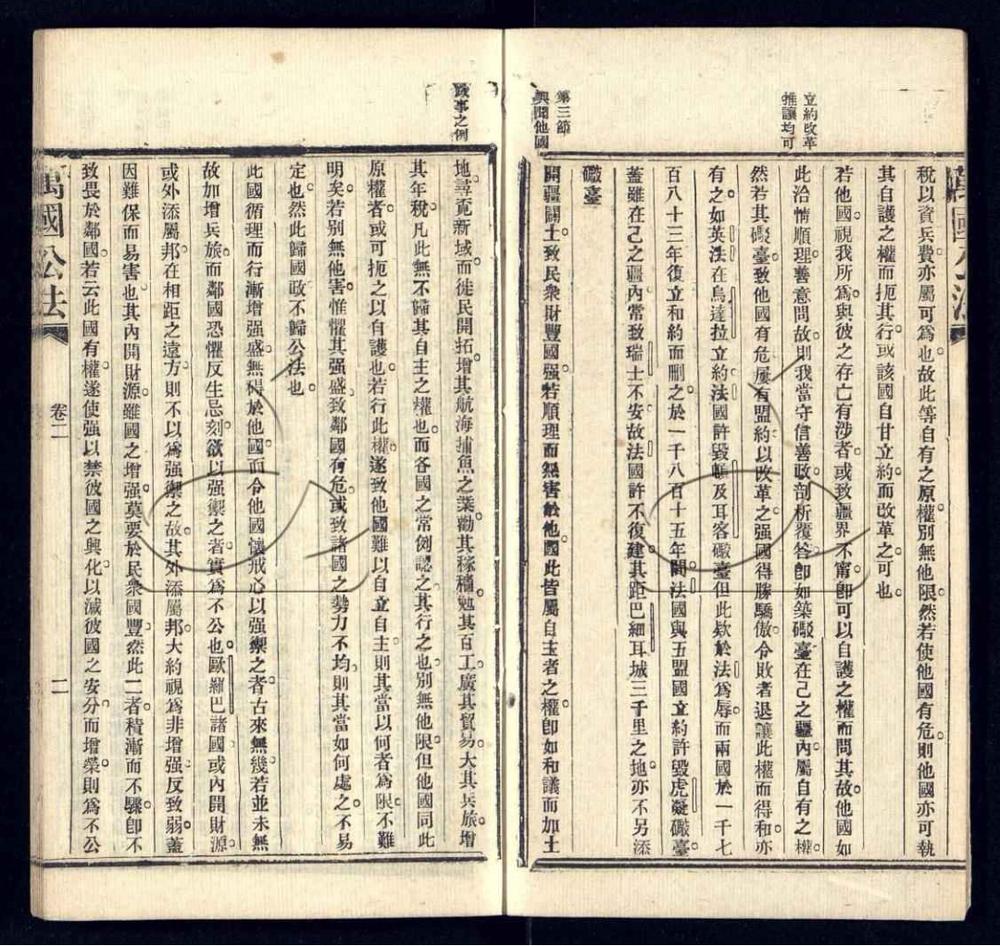 立約改革
推讓均可
萬國公法
稅以資兵費亦屬可爲也故此等自有之原權別無他限然若使他國有危則他國亦可執
其自護之權而扼其行或該國自甘立約而改革之可也
若他國視我所爲與彼之存亡有涉者或致疆界不甯卽可以自護之權而問其故他國如
此洽情順理善意問故則我當守信善政剖析覆答卽如築礮臺在己之疆內屬自有之權
然若其礮臺致他國有危屢有盟約以改革之强國得勝驕傲令敗者退讓此權而得和亦
有之如英法在烏達拉立約法國許毀及耳客礮臺但此欵於法爲辱而兩國於一千七
百八十三年復立和約而刪之於一千八百十五年間法國與五盟國立約許毀虎礙礮臺
蓋雖在己之疆內常致瑞士不安故法國許不復建其距巴細耳城三千里之地亦不另添
礮臺
第三節
與聞他國
政事之例
開疆闢土致民衆財豐國强若順理而無害於他國此皆屬自主者之權卽如和議而加土
地尋覓新域而徙民開拓增其航海捕魚之業勸其稼穡勉其百工廣其貿易大其兵旅增
其年稅凡此無不歸其自主之權也而各國之常例認之其行之也別無他限但他國同此
原權者或可扼之以自護也若行此權遂致他國難以自立自主則其當以何者爲限不難
明矣若別無他害惟懼其强盛致鄰國有危或致諸國之勢力不均則其當如何處之不易
定也然此歸國政不歸公法也
此國循理而行漸增强盛無碍於他國而令他國懷戒心以强禦之者古來無幾若並未無
故加增兵旅而鄰國恐懼反生忌刻欲以强禦之者實爲不公也歐羅巴諸國或內開財源
或外添屬邦在相距之遠方則不以爲强禦之故其外添屬邦大約視爲非增强反致弱蓋
因難保而易害也其內開財源雖國之增强莫要於民衆國豐然此二者積漸而不驟卽不
致畏於鄰國若云此國有權遂使强以禁彼國之興化以減彼國之安分而增榮則爲不公
萬國公法
卷二
二